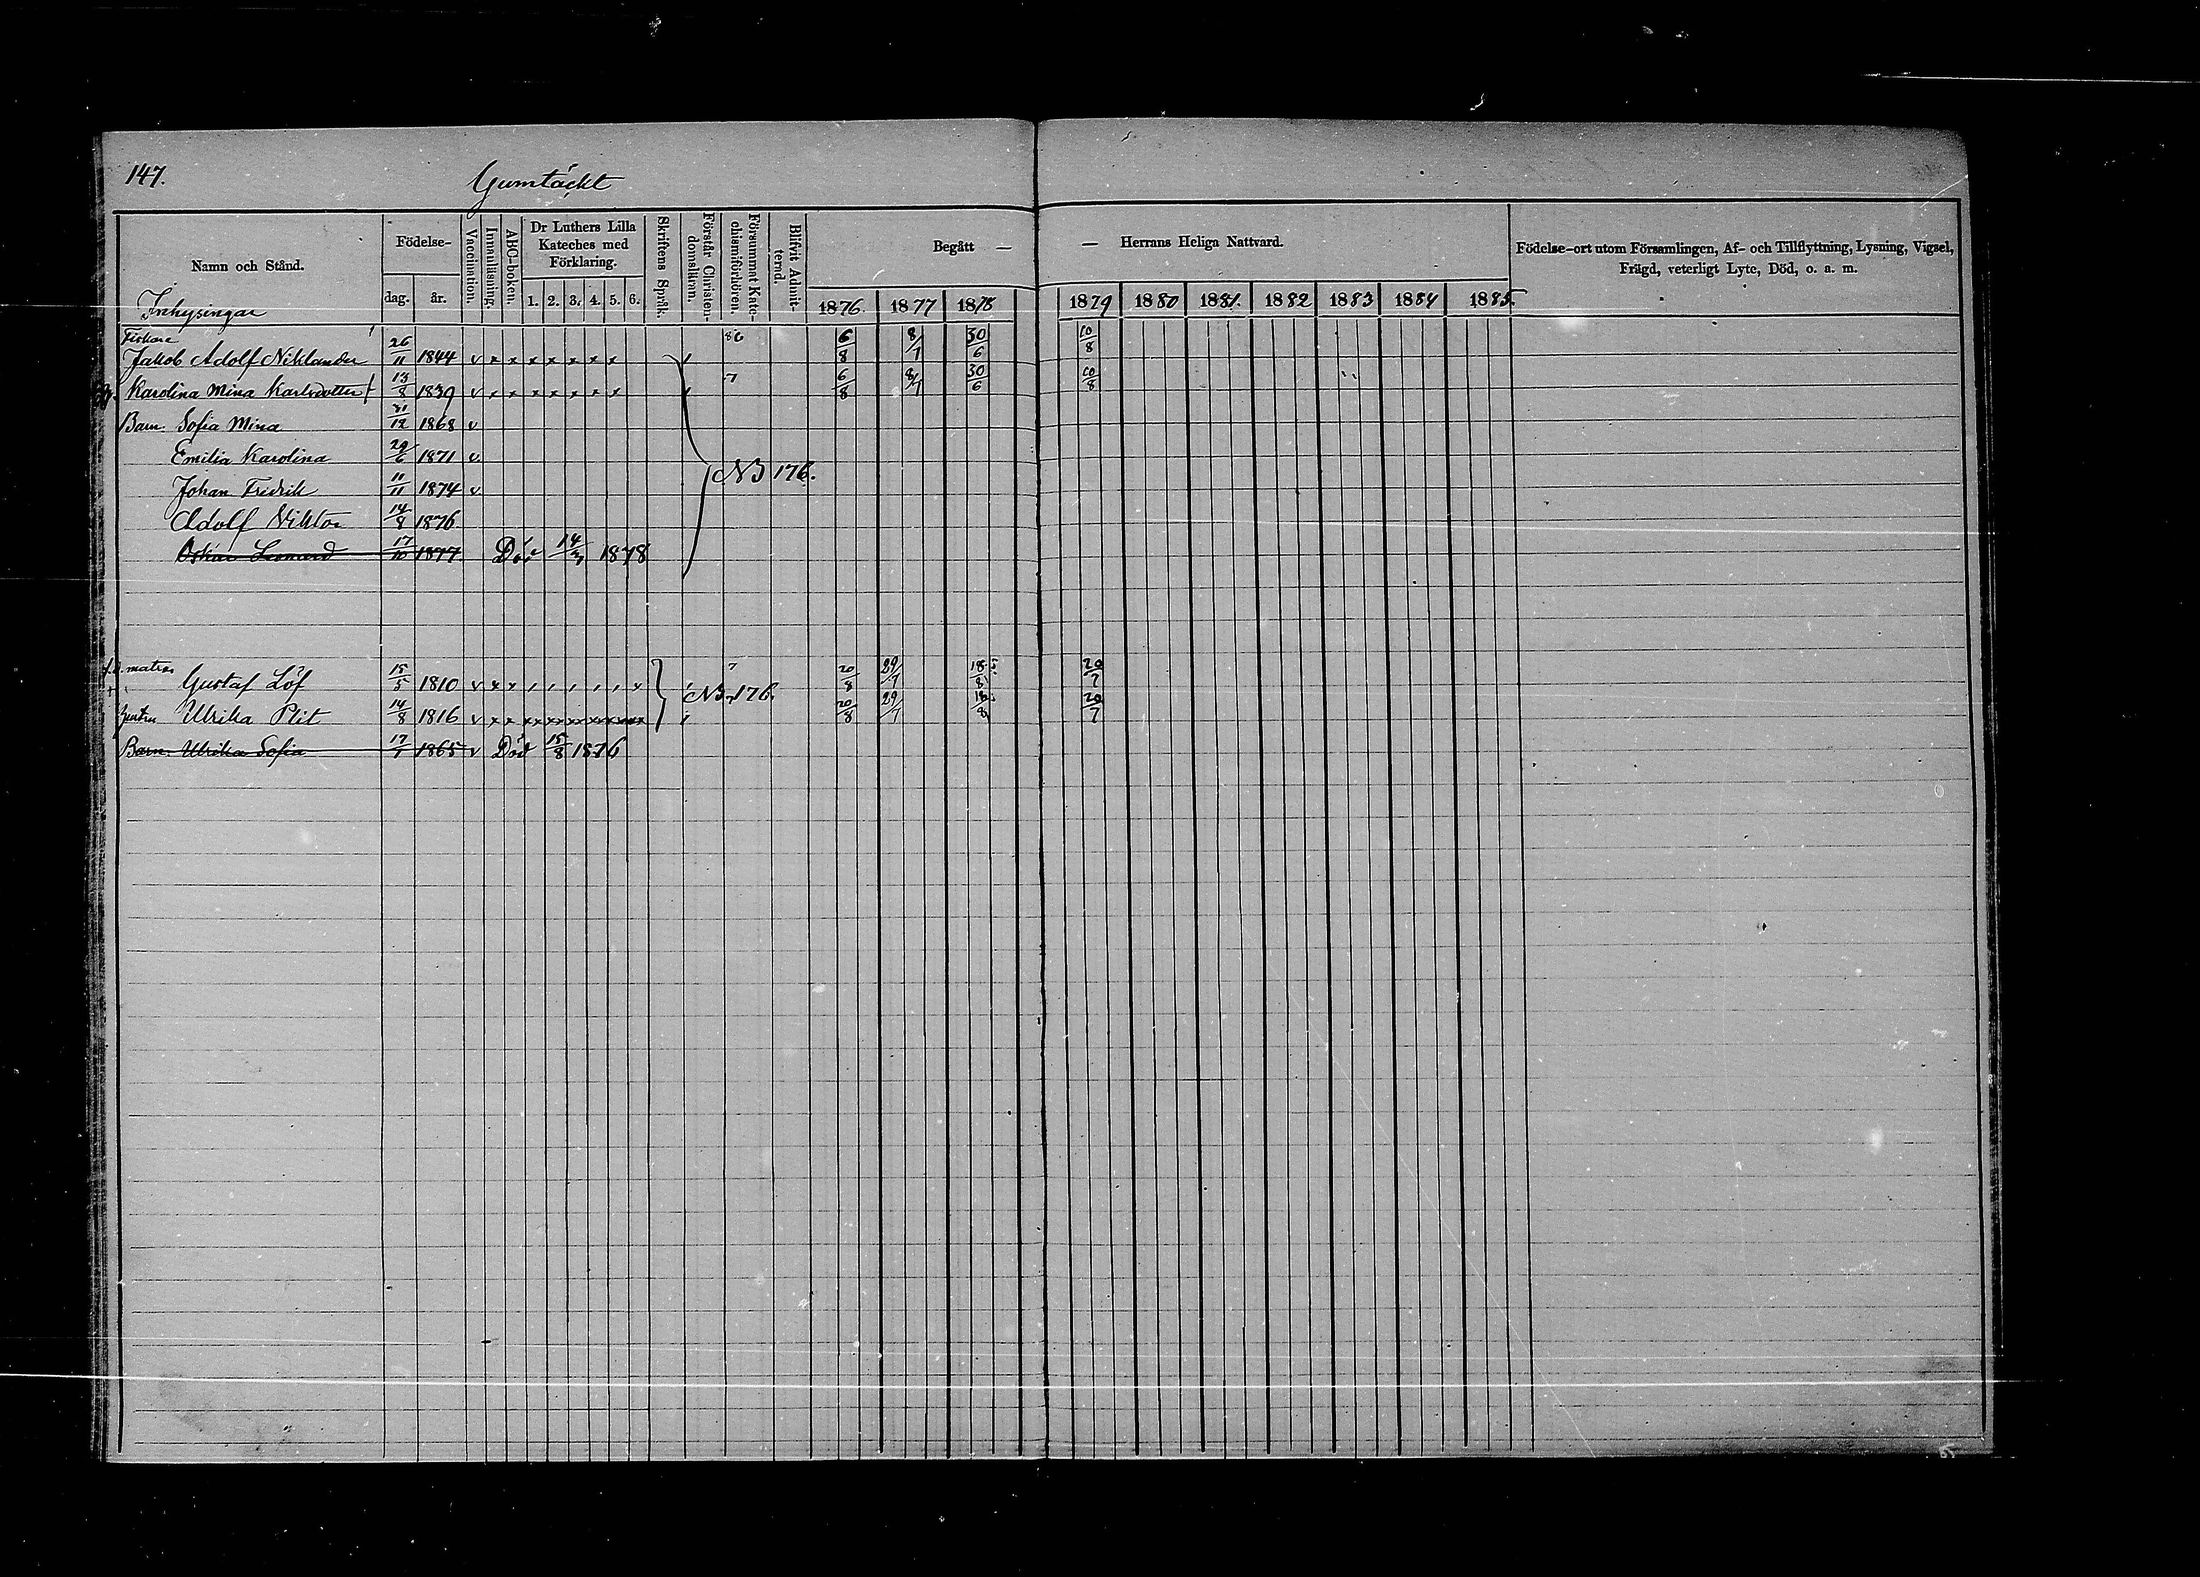 147.
Gumtäckt
Namn och Stånd.
Födelse-
dag. år.
Vaccination.
Innanläsning.
ABC-boken.
Dr Luthers Lilla Kateches med Förklaring.
1. 2. 3. 4. 5. 6.
Skriftens Språk.
Förstår Christendomsläran.
Försummat Katechismiförhören.
Blifvit Admitterad.
Begått —
— Herrans Heliga Nattvard.
1876. 1877 1878 1879 1880 1881. 1882 1883 1884 1885.
Födelse-ort utom Församlingen, Af- och Tillflyttning, Lysning, Vigsel,
Frägd, veterligt Lyte, Död, o. a. m.
Inhysingar
Fiskare
Jakob Adolf Niklander 26/11 1844 v x x x x x x x 6/8 8/7 30/6 10/8
Karolina Mina Karlsdotter 13/8 1839 v x x x x x x x 7 6/8 8/7 30/6 10/8
Barn Sofia Mina 31/12 1868 v
Emilia Karolina 29/6 1871 v.
N3 176.
Johan Fredrik 11/11 1874 v
Adolf Viktor 14/8 1876
Oskar Leonard 17/10 1877 Död 14/7 1878
f.d. matros
Gustaf Löf 15/5 1810 v x x 7 20/8 29/7 18/8 20/7
N3 176.
hustru Ulrika Plit 14/8 1816 v x x xx xx xx xx xx xx 20/8 29/7 18/8 20/7
Barn Ulrika Sofia 17/7 1865 v Död 15/8 1876